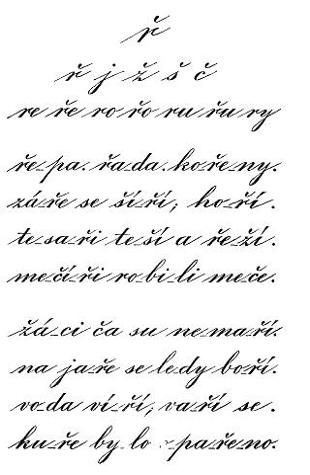 ř
ř j ž š č
re ře ro řo ru řu ry
ře-pa. řa-da. ko-ře-ny.
zá-ře se ší-ří; ho-ří.
te-sa-ři te-ší a ře-ží.
me-čí-ři ro-bi-li me-če.
žá-ci ča su ne-ma-ří.
na ja-ře se le-dy bo-ří.
vo-da ví-ří; va-ří se.
ku-ře by-lo pa-ře-no.